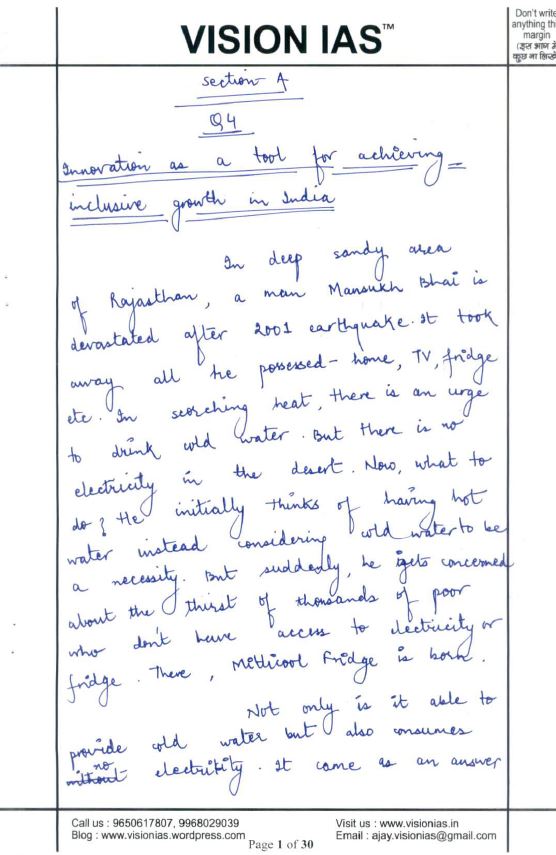 VISION IAS™
Don't write
anything th
margin
(इस भाग में
कुछ ना लिखें
Section A
Q4
Innovation as a tool for achieving
inclusive growth in India
In deep sandy area
of Rajasthan, a man Mansukh Bhai is
devastated after 2001 earthquake. It took
away all he possessed - home, TV, fridge
etc. In scorching heat, there is an urge
to drink cold water. But there is no
electricity in the desert. Now, what to
do? He initially thinks of having hot
water instead considering cold water to be
a necessity. But suddenly, he gets concerned
about the thirst of thousands of poor
who don't have access to electricity or
fridge. There, Mitticool Fridge is born.
Not only is it able to
provide cold water but also consumes
no
without electricity. It came as an answer
Call us : 9650617807, 9968029039
Visit us : www.visionias.in
Blog : www.visionias.wordpress.com
Email : ajay.visionias@gmail.com
Page 1 of 30